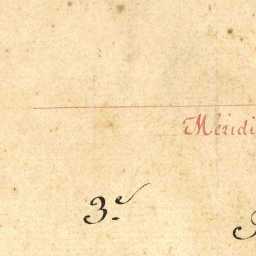 Meridi
3.e